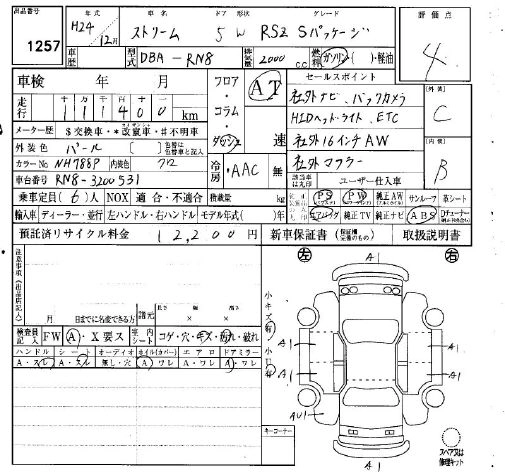 出品番号
1257
年式 車名 ドア 形状 グレード
H24 12月 ストリーム 5 W RSZ Sパッケージ
評価点
4
車歴 型式 DBA-RN8 排気量 2000 c.c 燃料 ガソリン・( )・軽油
車検 年 月
走行 111400 km
フロア・コラム・ダッシュ
AT
速
セールスポイント
社外ナビ、バックカメラ
HIDヘッドライト、ETC
社外16インチAW
社外マフラー
外装
C
内装
B
メーター歴 $交換車・*改竄車・#不明車
外装色 パール ( )
カラーNo NH788P 内装色 クロ
車台番号 RN8-3200531
冷房 AAC 無
ユーザー仕入車
乗車定員 (6)人 NOX 適合・不適合 積載量 kg
PS PW 純正AW サンルーフ 革シート
輸入車 ディーラー・並行 左ハンドル・右ハンドル モデル年式( )年
エアバッグ 純正TV 純正ナビ ABS
預託済リサイクル料金 12,200円 新車保証書 取扱説明書
注意事項(出品店記入)
月 日までに名変できる方
諸元 長さ 幅 高さ
検査員記入 FW A・X要ス 室内シート コゲ・穴・キズ・汚れ・破れ
ハンドル シート オーディオ ホイル(カバー) エアロ ドアミラー
A・スレ A・スレ 無し・穴 A・ワレ A・ワレ A・ワレ
小キズ有
小凹有
キーコーナー
左 右
A1
A1
A1
A1
A1
AU1
A1
スペア又は修理キット